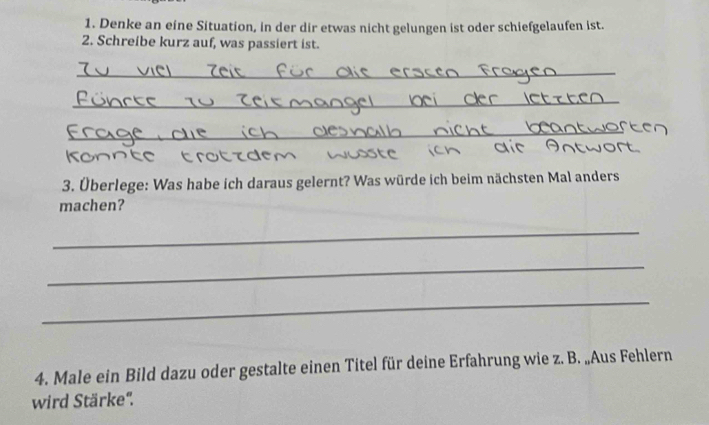 1. Denke an eine Situation, in der dir etwas nicht gelungen ist oder schiefgelaufen ist.
2. Schreibe kurz auf, was passiert ist.
Zu viel Zeit für die ersten Fragen
führte zu Zeitmangel bei der letzten
Frage, die ich deshalb nicht beantworten
konnte trotzdem wusste ich die Antwort.
3. Überlege: Was habe ich daraus gelernt? Was würde ich beim nächsten Mal anders
machen?
4. Male ein Bild dazu oder gestalte einen Titel für deine Erfahrung wie z. B. „Aus Fehlern
wird Stärke“.